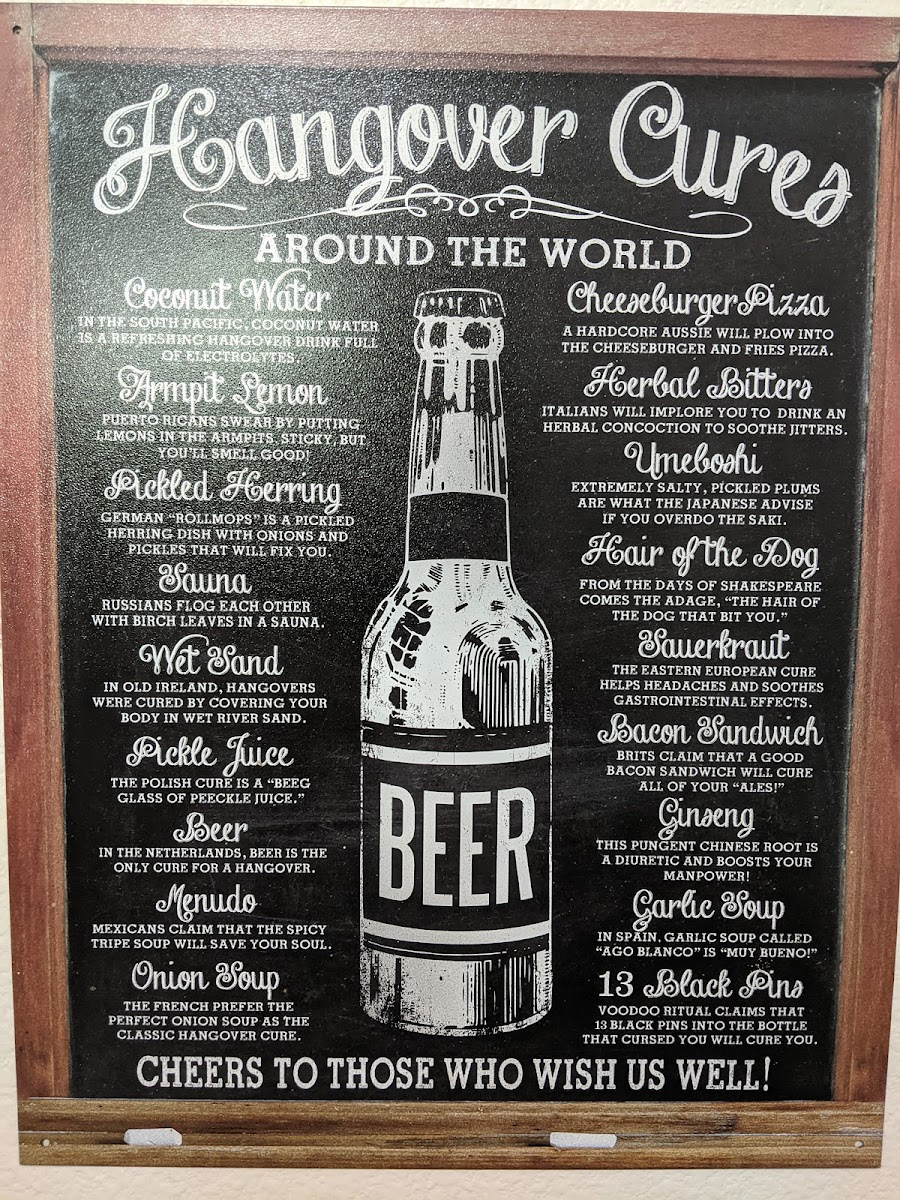 Hangover Cures
AROUND THE WORLD
Coconut Water
IN THE SOUTH PACIFIC, COCONUT WATER
IS A REFRESHING HANGOVER DRINK FULL
OF ELECTROLYTES.
Armpit Lemon
PUERTO RICANS SWEAR BY PUTTING
LEMONS IN THE ARMPITS. STICKY, BUT
YOU'LL SMELL GOOD!
Pickled Herring
GERMAN "ROLLMOPS" IS A PICKLED
HERRING DISH WITH ONIONS AND
PICKLES THAT WILL FIX YOU.
Sauna
RUSSIANS FLOG EACH OTHER
WITH BIRCH LEAVES IN A SAUNA.
Wet Sand
IN OLD IRELAND, HANGOVERS
WERE CURED BY COVERING YOUR
BODY IN WET RIVER SAND.
Pickle Juice
THE POLISH CURE IS A "BEEG
GLASS OF PEECKLE JUICE."
Beer
IN THE NETHERLANDS, BEER IS THE
ONLY CURE FOR A HANGOVER.
Menudo
MEXICANS CLAIM THAT THE SPICY
TRIPE SOUP WILL SAVE YOUR SOUL.
Onion Soup
THE FRENCH PREFER THE
PERFECT ONION SOUP AS THE
CLASSIC HANGOVER CURE.
BEER
Cheeseburger Pizza
A HARDCORE AUSSIE WILL PLOW INTO
THE CHEESEBURGER AND FRIES PIZZA.
Herbal Bitters
ITALIANS WILL IMPLORE YOU TO DRINK AN
HERBAL CONCOCTION TO SOOTHE JITTERS.
Umeboshi
EXTREMELY SALTY, PICKLED PLUMS
ARE WHAT THE JAPANESE ADVISE
IF YOU OVERDO THE SAKI.
Hair of the Dog
FROM THE DAYS OF SHAKESPEARE
COMES THE ADAGE, "THE HAIR OF
THE DOG THAT BIT YOU."
Sauerkraut
THE EASTERN EUROPEAN CURE
HELPS HEADACHES AND SOOTHES
GASTROINTESTINAL EFFECTS.
Bacon Sandwich
BRITS CLAIM THAT A GOOD
BACON SANDWICH WILL CURE
ALL OF YOUR "ALES!"
Ginseng
THIS PUNGENT CHINESE ROOT IS
A DIURETIC AND BOOSTS YOUR
MANPOWER!
Garlic Soup
IN SPAIN, GARLIC SOUP CALLED
"AGO BLANCO" IS "MUY BUENO!"
13 Black Pins
VOODOO RITUAL CLAIMS THAT
13 BLACK PINS INTO THE BOTTLE
THAT CURSED YOU WILL CURE YOU.
CHEERS TO THOSE WHO WISH US WELL!